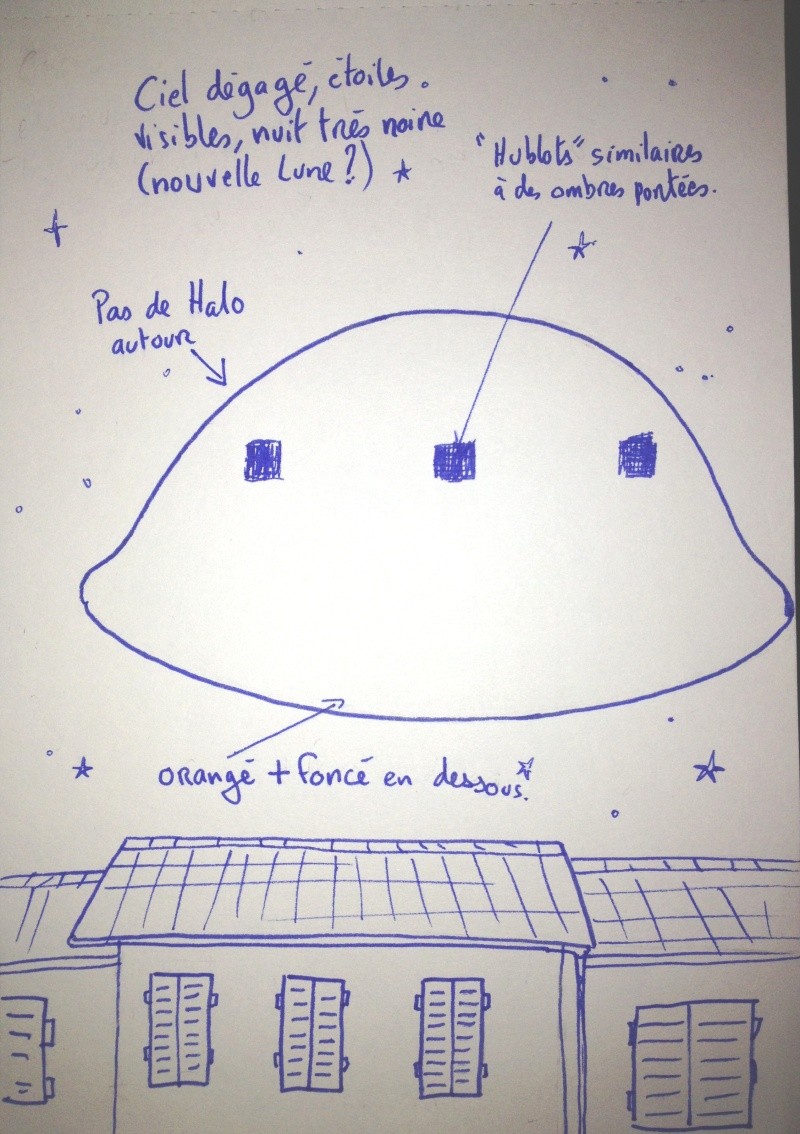 Ciel dégagé, étoiles.
visibles, nuit très noire
(nouvelle Lune?)
"Hublots" similaires
à des ombres portées.
Pas de Halo
autour
orangé + foncé en dessous.